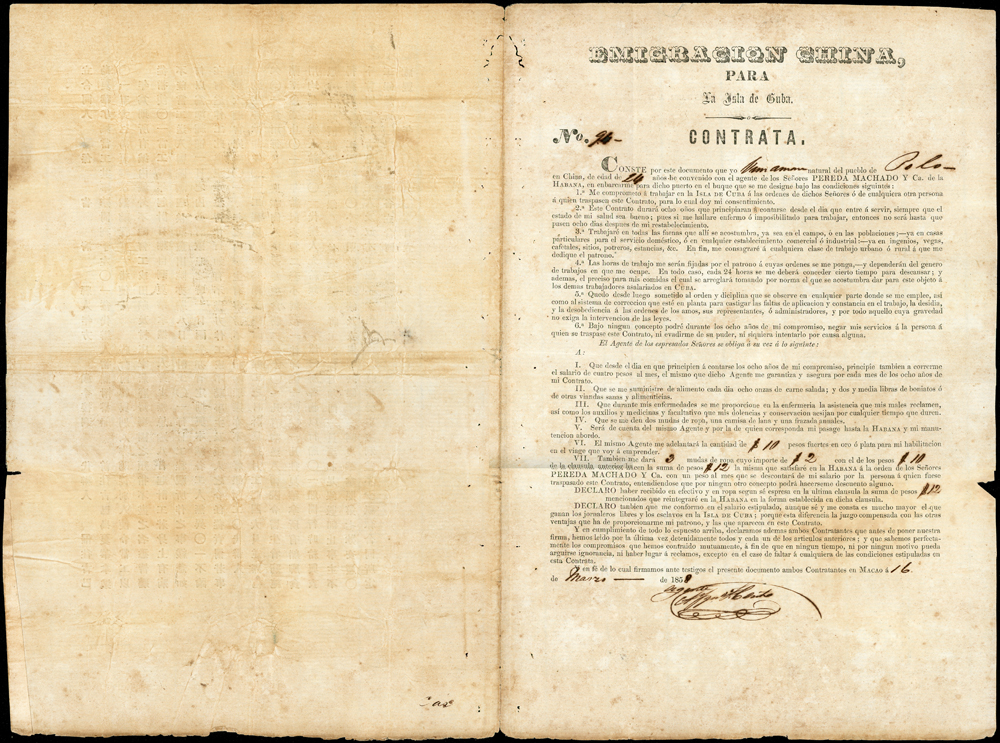 EMIGRACION CHINA,
PARA
La Isla de Cuba.
CONTRATA.
No. 94
CONSTE por este documento que yo natural del pueblo de
en China, de edad de 24 años he convenido con el agente de los Señores PEREDA MACHADO Y Ca. de la
HABANA, en embarcarme para dicho puerto en el buque que se me designe bajo las condiciones siguintes:
1.ª Me comprometo á trabajar en la ISLA DE CUBA á las ordenes de dichos Señores ó de cualquiera otra persona
á quien traspasen este Contrato, para lo cual doy mi consentimiento.
2.ª Este Contrato durará ocho años que principiaran á contarse desde el dia que entre á servir, siempre que el
estado de mi salud sea bueno; pues si me hallare enfermo ó imposibilitado para trabajar, entonces no será hasta que
pasen ocho dias despues de mi restablecimiento.
3.ª Trabajaré en todas las faenas que allí se acostumbra, ya sea en el campo, ó en las poblaciones;—ya en casas
particulares para el servicio doméstico, ó en cualquier establecimiento comercial ó industrial:—ya en ingenios, vegas,
cafetales, sitios, potreros, estancias, &c. En fin, me consagraré á cualquiera clase de trabajo urbano ó rural á que me
dedique el patrono.
4.ª Las horas de trabajo me serán fijadas por el patrono á cuyas ordenes se me ponga,—y dependerán del genero
de trabajos en que me ocupe. En todo caso, cada 24 horas se me deberá conceder cierto tiempo para descansar; y
ademas, el preciso para mis comidas el cual se arreglará tomando por norma el que se acostumbre dar para este objeto á
los demas trabajadores asalariados en CUBA.
5.ª Quedo desde luego sometido al orden y diciplina que se observe en cualquier parte donde se me emplee, así
como al sistema de correccion que esté en planta para castigar las faltas de aplicacion y constancia en el trabajo, la desidia,
y la desobediencia á las ordenes de los amos, sus representantes, ó administradores, y por todo aquello cuya gravedad
no exiga la intervencion de las leyes.
6.ª Bajo ningun concepto podré durante los ocho años de mi compromiso, negar mis servicios á la persona á
quien se traspase este Contrato, ni evadirme de su poder, ni siquiera intentarlo por causa alguna.
El Agente de los espresados Señores se obliga á su vez á lo siguiente:
A:
I. Que desde el dia en que principien á contarse los ocho años de mi compromiso, principie tambien a correrme
el salario de cuatro pesos al mes, el mismo que dicho Agente me garantiza y asegura por cada mes de los ocho años de
mi Contrato.
II. Que se me suministre de alimento cada dia ocho onzas de carne salada; y dos y media libras de boniatos ó
de otras viandas sanas y alimenticias.
III. Que durante mis enfermedades se me proporcione en la enfermeria la asistencia que mis males reclamen,
así como los auxilios y medicinas y facultativo que mis dolencias y conservacion acsijan por cualquier tiempo que duren.
IV. Que se me den dos mudas de ropa, una camisa de lana y una frazada anuales.
V. Será de cuenta del mismo Agente y por la de quien corresponda mi pasage hasta la HABANA y mi manu-
tencion abordo.
VI. El mismo Agente me adelantará la cantidad de $ 10 pesos fuertes en oro ó plata para mi habilitacion
en el viage que voy á emprender.
VII. Tambien me dará 3 mudas de ropa cuyo importe de $ 2 con el de los pesos $ 10
de la clausula anterior hacen la suma de pesos $ 12 la misma que satisfaré en la HABANA á la orden de los Señores
PEREDA MACHADO Y Ca. con un peso al mes que se descontará de mi salario por la persona á quien fuese
traspasado este Contrato, entendiendose que por ningun otro concepto podrá hacerseme descuento alguno.
DECLARO haber recibido en efectivo y en ropa segun sé espresa en la ultima clausula la suma de pesos $12
mencionados que reintegraré en la HABANA en la forma establecida en dicha clausula.
DECLARO tanbien que me conformo en el salario estipulado, aunque sé y me consta es mucho mayor el que
ganan los jornaleros libres y los esclavos en la ISLA DE CUBA; porque esta diferencia la juzgo compensada con las otras
ventajas que ha de proporcionarme mi patrono, y las que aparecen en este Contrato.
Y en cumplimiento de todo lo espuesto arriba, declaramos ademas ambos Contratantes que antes de poner nuestra
firma, hemos leido por la última vez detenidamente todos y cada un dé los articulos anteriores; y que sabemos perfecta-
mente los compromisos que hemos contraido mutuamente, á fin de que en ningun tiempo, ni por ningun motivo pueda
arguirse ignorancia, ni haber lugar á reclamos, excepto en el caso de faltar á cualquiera de las condiciones estipuladas en
esta Contrata.
Y en fé de lo cual firmamos ante testigos el presente documento ambos Contratantes en MACAO á 16
de Marzo de 1858